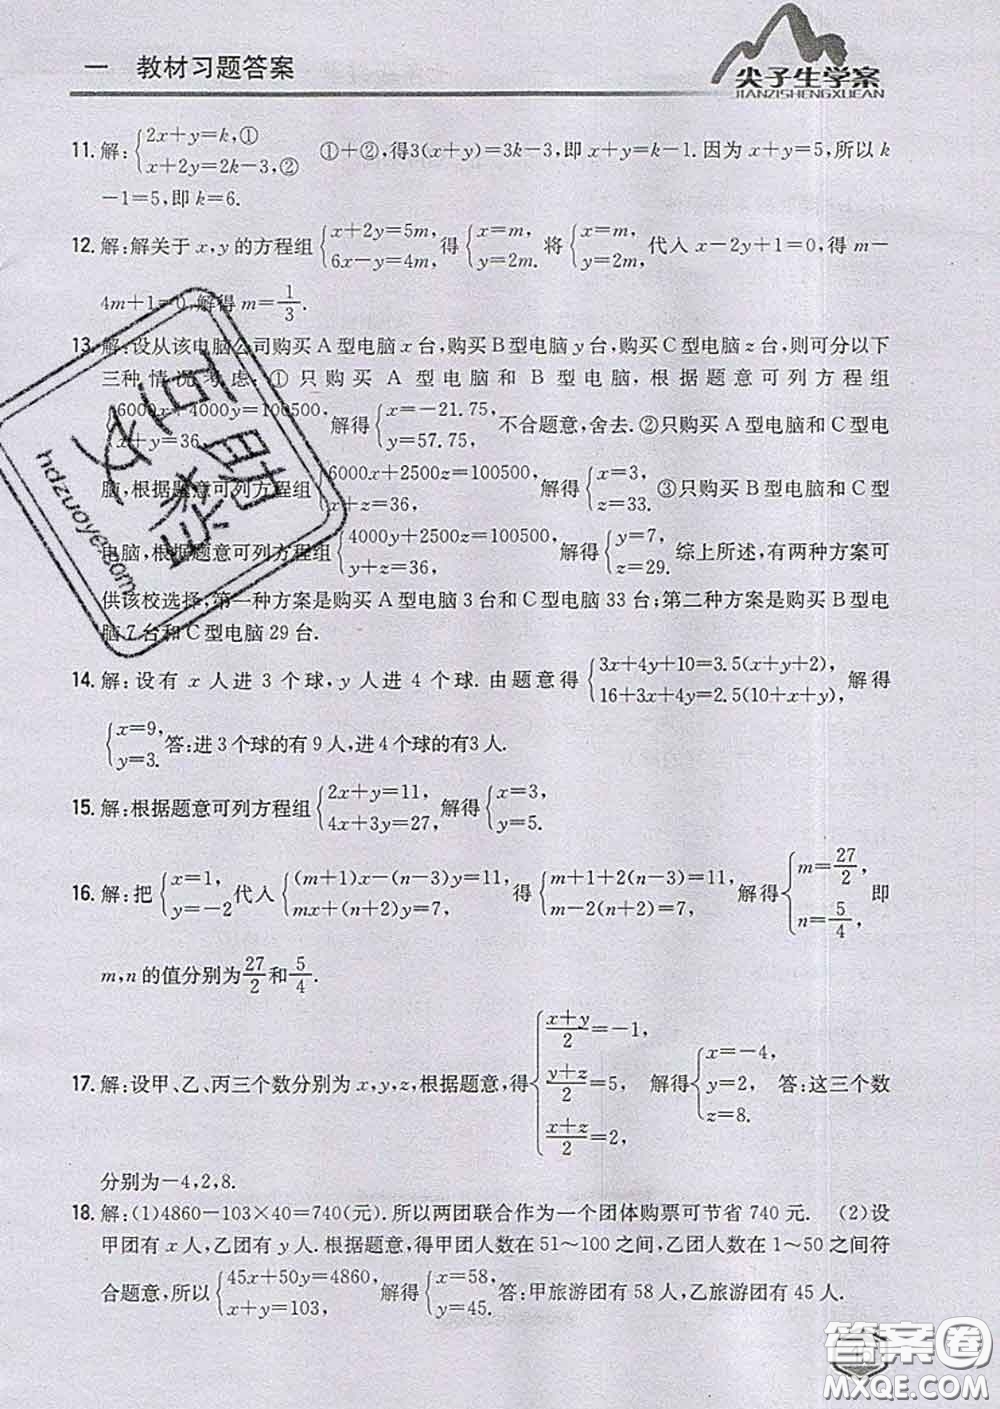 一 教材习题答案
尖子生学案
JIANZISHENGXUEAN
11. 解:{2x+y=k,① x+2y=2k-3,② ①+②,得3(x+y)=3k-3,即 x+y=k-1. 因为 x+y=5,所以 k
-1=5,即 k=6.
12. 解:解关于 x,y 的方程组{x+2y=5m, 6x-y=4m, 得{x=m, y=2m. 将{x=m, y=2m, 代入 x-2y+1=0,得 m-
4m+1=0,解得 m=1/3.
13. 解:设从该电脑公司购买A型电脑 x 台,购买B型电脑 y 台,购买C型电脑 z 台,则可分以下
三种情况考虑:①只购买A型电脑和B型电脑,根据题意可列方程组
{6000x+4000y=100500, x+y=36, 解得{x=-21.75, y=57.75, 不合题意,舍去. ②只购买A型电脑和C型电
脑,根据题意可列方程组{6000x+2500z=100500, x+z=36, 解得{x=3, z=33. ③只购买B型电脑和C型
电脑,根据题意可列方程组{4000y+2500z=100500, y+z=36, 解得{y=7, z=29. 综上所述,有两种方案可
供该校选择,第一种方案是购买A型电脑3台和C型电脑33台;第二种方案是购买B型电
脑7台和C型电脑29台.
14. 解:设有 x 人进3个球,y 人进4个球. 由题意得{3x+4y+10=3.5(x+y+2), 16+3x+4y=2.5(10+x+y), 解得
{x=9, y=3. 答:进3个球的有9人,进4个球的有3人.
15. 解:根据题意可列方程组{2x+y=11, 4x+3y=27, 解得{x=3, y=5.
16. 解:把{x=1, y=-2 代入{(m+1)x-(n-3)y=11, mx+(n+2)y=7, 得{m+1+2(n-3)=11, m-2(n+2)=7, 解得{m=27/2, n=5/4, 即
m,n 的值分别为27/2和5/4.
17. 解:设甲、乙、丙三个数分别为 x,y,z,根据题意,得{(x+y)/2=-1, (y+z)/2=5, (x+z)/2=2, 解得{x=-4, y=2, z=8. 答:这三个数
分别为-4,2,8.
18. 解:(1)4860-103×40=740(元). 所以两团联合作为一个团体购票可节省740元. (2)设
甲团有 x 人,乙团有 y 人. 根据题意,得甲团人数在51~100之间,乙团人数在1~50之间符
合题意,所以{45x+50y=4860, x+y=103, 解得{x=58, y=45. 答:甲旅游团有58人,乙旅游团有45人.
互助
文案
hdzuoye.com
答案圈
MXQE.COM